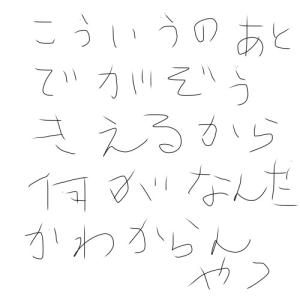 こういうのあと
でがぞう
きえるから
何がなんだ
かわからん
やつ